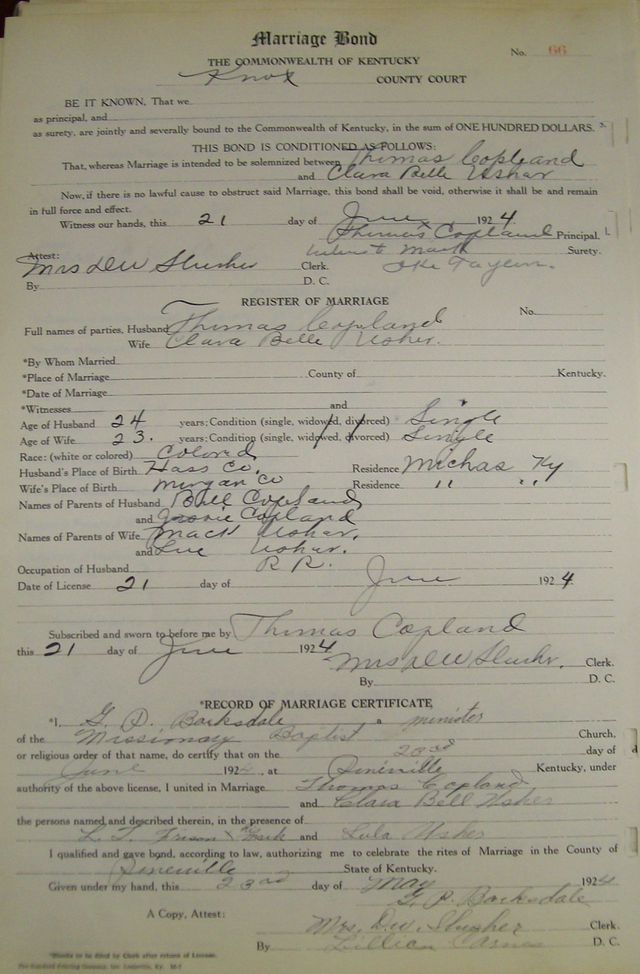 Marriage Bond
No. 66
THE COMMONWEALTH OF KENTUCKY
Knox COUNTY COURT
BE IT KNOWN, That we
as principal, and
as surety, are jointly and severally bound to the Commonwealth of Kentucky, in the sum of ONE HUNDRED DOLLARS.
THIS BOND IS CONDITIONED AS FOLLOWS:
That, whereas Marriage is intended to be solemnized between Thomas Copland
and Clara Belle Ushar
Now, if there is no lawful cause to obstruct said Marriage, this bond shall be void, otherwise it shall be and remain
in full force and effect.
Witness our hands, this 21 day of June 1924
Thomas Copland Principal.
Attest: Surety.
Mrs D W Slusher Clerk.
By D. C.
REGISTER OF MARRIAGE
No.
Full names of parties, Husband Thomas Copland
Wife Clara Belle Usher.
*By Whom Married
*Place of Marriage County of Kentucky.
*Date of Marriage
*Witnesses and
Age of Husband 24 years; Condition (single, widowed, divorced) Single
Age of Wife 23. years; Condition (single, widowed, divorced) Single
Race: (white or colored) Colored
Husband's Place of Birth Co. Residence Ky
Wife's Place of Birth Morgan Co Residence " "
Names of Parents of Husband Bill Copland
and Copland
Names of Parents of Wife Mack Ushar.
and Ushar.
Occupation of Husband R R.
Date of License 21 day of June 1924
Subscribed and sworn to before me by Thomas Copland
this 21 day of June 1924
Mrs D W Slusher. Clerk.
By D. C.
*RECORD OF MARRIAGE CERTIFICATE
*I, G. P. Barksdale a minister
of the Missionary Baptist Church,
or religious order of that name, do certify that on the 23rd day of
June 1924, at Pineville Kentucky, under
authority of the above license, I united in Marriage Thomas Copland
and Clara Bell Usher
the persons named and described therein, in the presence of
and Lula Usher
I qualified and gave bond, according to law, authorizing me to celebrate the rites of Marriage in the County of
Pineville State of Kentucky.
Given under my hand, this 23rd day of May 1924
G. P. Barksdale
A Copy, Attest:
Mrs. D. W. Slusher Clerk.
By Lillian D. C.
*Blanks to be filled by Clerk after return of License.